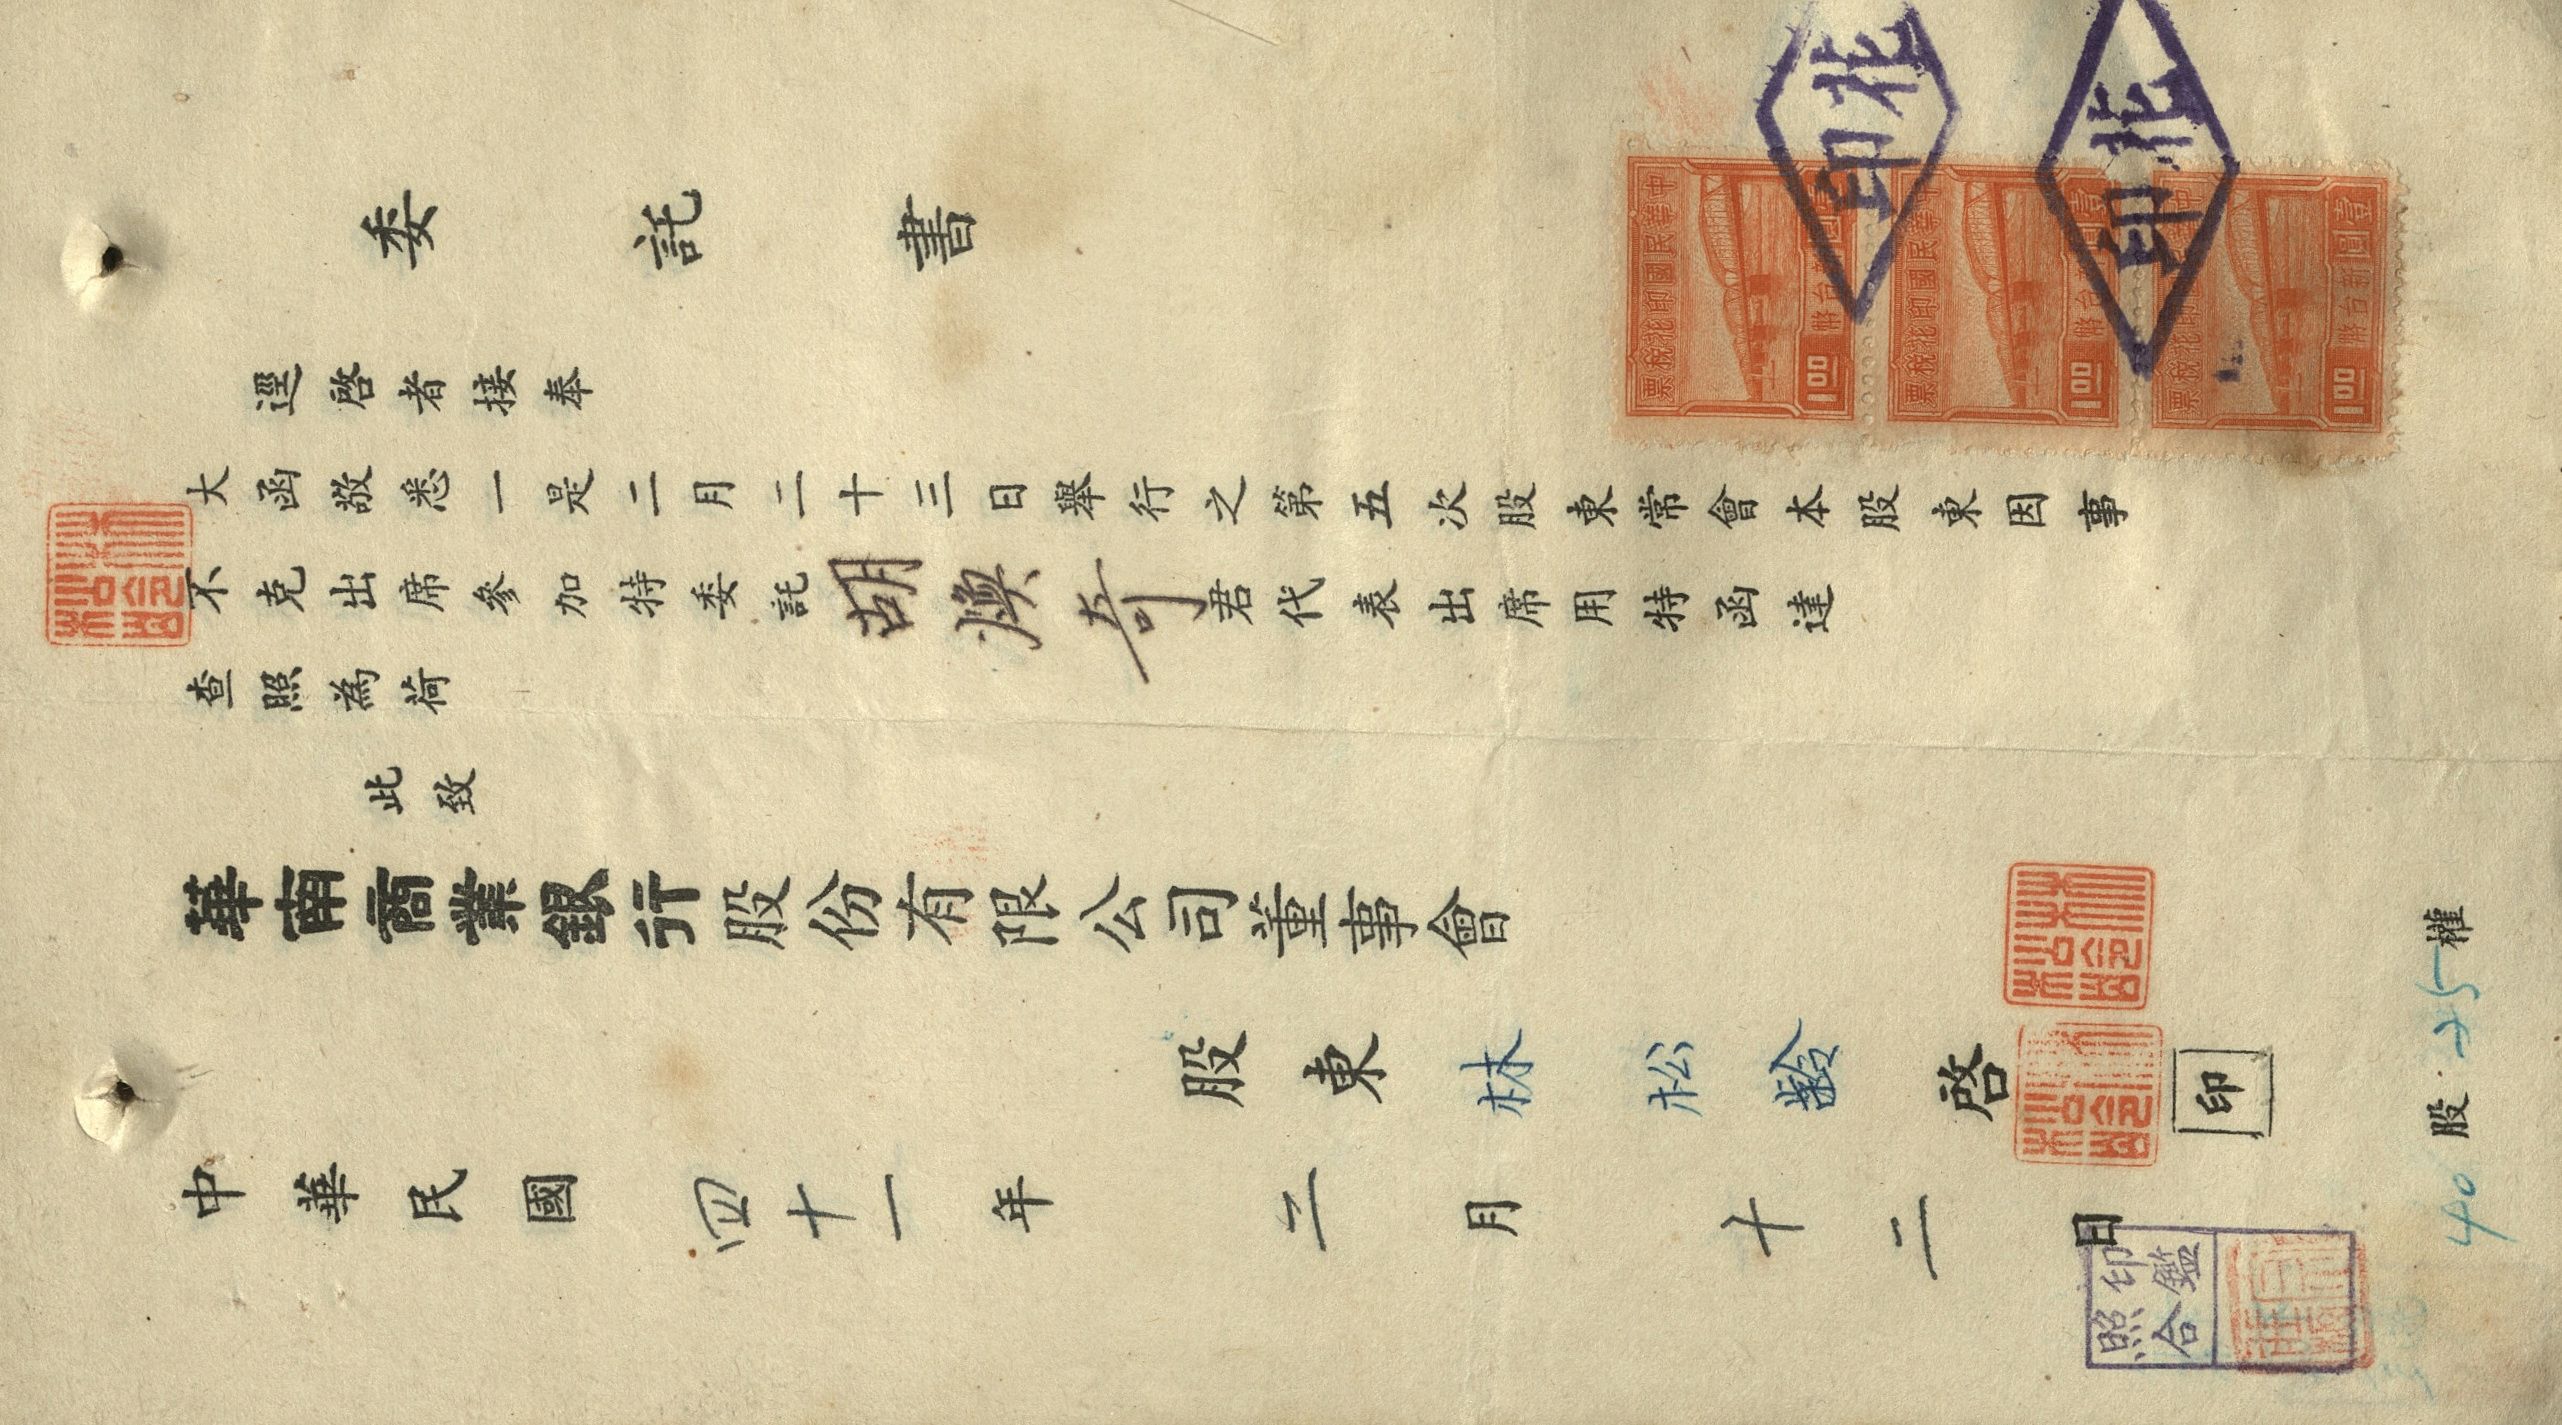 委託書
逕啓者接奉
大函敬悉一是二月二十三日舉行之第五次股東常會本股東因事
不克出席參加特委託胡煥奇君代表出席用特函達
查照為荷
此致
華南商業銀行股份有限公司董事會
股東林松齡啓
印
中華民國四十一年二月十二日
40股25權
印鑑
照合
中華民國印花稅票
壹圓新台幣
1.00
中華民國印花稅票
壹圓新台幣
1.00
中華民國印花稅票
壹圓新台幣
1.00
北印
北印